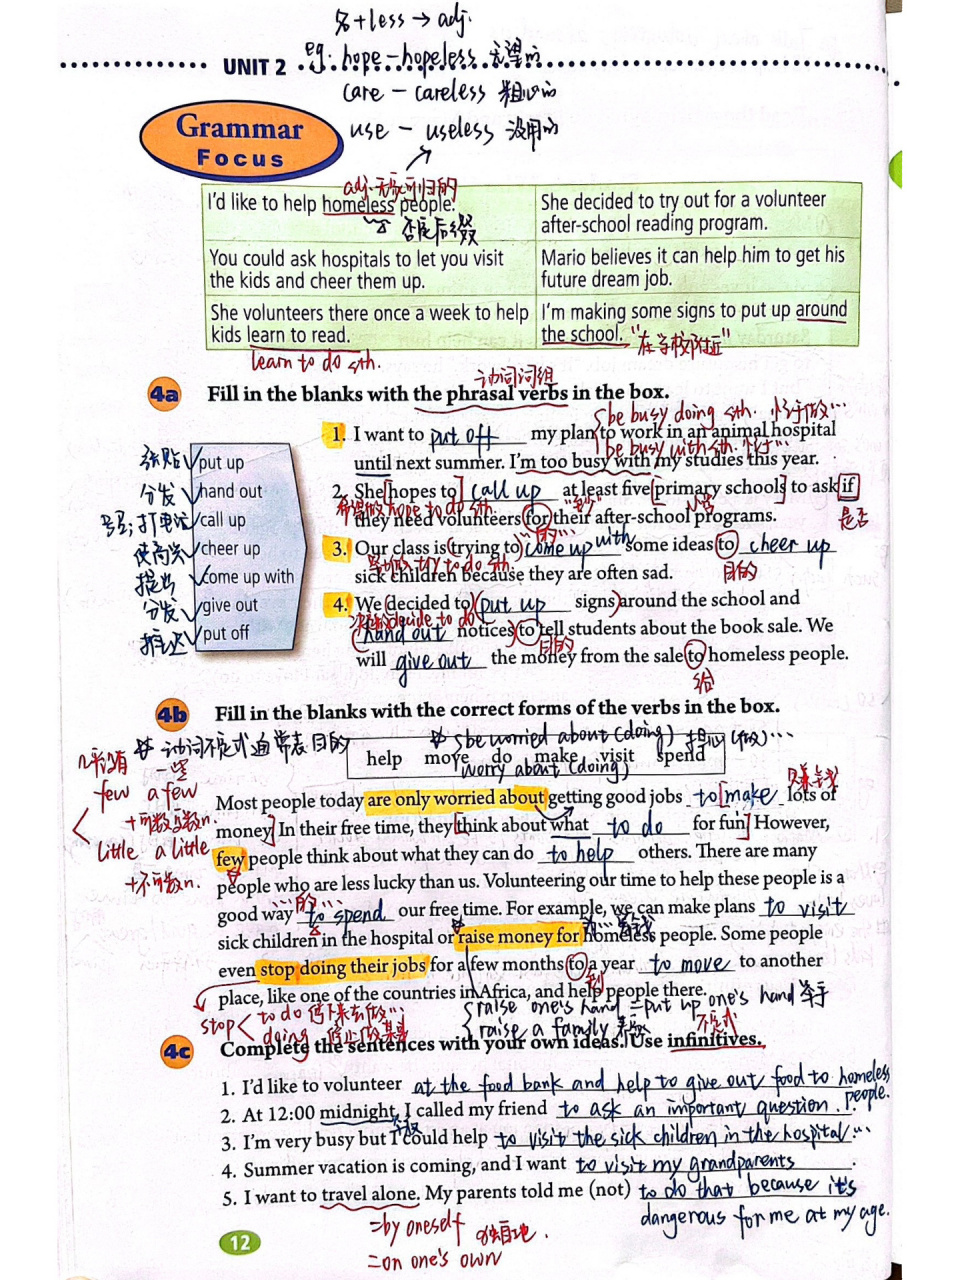 名+less → adj.
UNIT 2 eg: hope - hopeless 无望的
care - careless 粗心的
use - useless 没用的
Grammar
Focus
adj. 无家可归的
I'd like to help homeless people.
否定后缀
She decided to try out for a volunteer
after-school reading program.
You could ask hospitals to let you visit
the kids and cheer them up.
Mario believes it can help him to get his
future dream job.
She volunteers there once a week to help
kids learn to read.
I'm making some signs to put up around
the school. "在学校附近"
learn to do sth.
动词词组
4a Fill in the blanks with the phrasal verbs in the box.
be busy doing sth. 忙于做…
be busy with sth.
张贴 put up
分发 hand out
打电话 call up
使高兴 cheer up
提出 come up with
分发 give out
推迟 put off
1. I want to put off my plan to work in an animal hospital
until next summer. I'm too busy with my studies this year.
2. She hopes to call up at least five primary schools to ask if
希望做 hope to do sth.
是否
they need volunteers for their after-school programs.
"的"
3. Our class is trying to come up with some ideas to cheer up
try to do sth.
目的
sick children because they are often sad.
4. We decided to put up signs around the school and
decide to do
hand out notices to tell students about the book sale. We
目的
will give out the money from the sale to homeless people.
给
4b Fill in the blanks with the correct forms of the verbs in the box.
动词不定式通常表目的
be worried about (doing) 担心(做)…
worry about (doing)
help move do make visit spend
几乎没有 一些
few a few
+可数复数n.
little a little
+不可数n.
赚钱
Most people today are only worried about getting good jobs to make lots of
money. In their free time, they think about what to do for fun. However,
few people think about what they can do to help others. There are many
people who are less lucky than us. Volunteering our time to help these people is a
…的…
good way to spend our free time. For example, we can make plans to visit
sick children in the hospital or raise money for homeless people. Some people
even stop doing their jobs for a few months to a year to move to another
到
place, like one of the countries in Africa, and help people there.
stop to do 停下来去做…
doing 停止做某事
raise one's hand = put up one's hand 举手
raise a family
不定式
4c Complete the sentences with your own ideas. Use infinitives.
1. I'd like to volunteer at the food bank and help to give out food to homeless
people.
2. At 12:00 midnight, I called my friend to ask an important question.
3. I'm very busy but I could help to visit the sick children in the hospital…
4. Summer vacation is coming, and I want to visit my grandparents.
5. I want to travel alone. My parents told me (not) to do that because it's
dangerous for me at my age.
=by oneself 独自地.
=on one's own
12